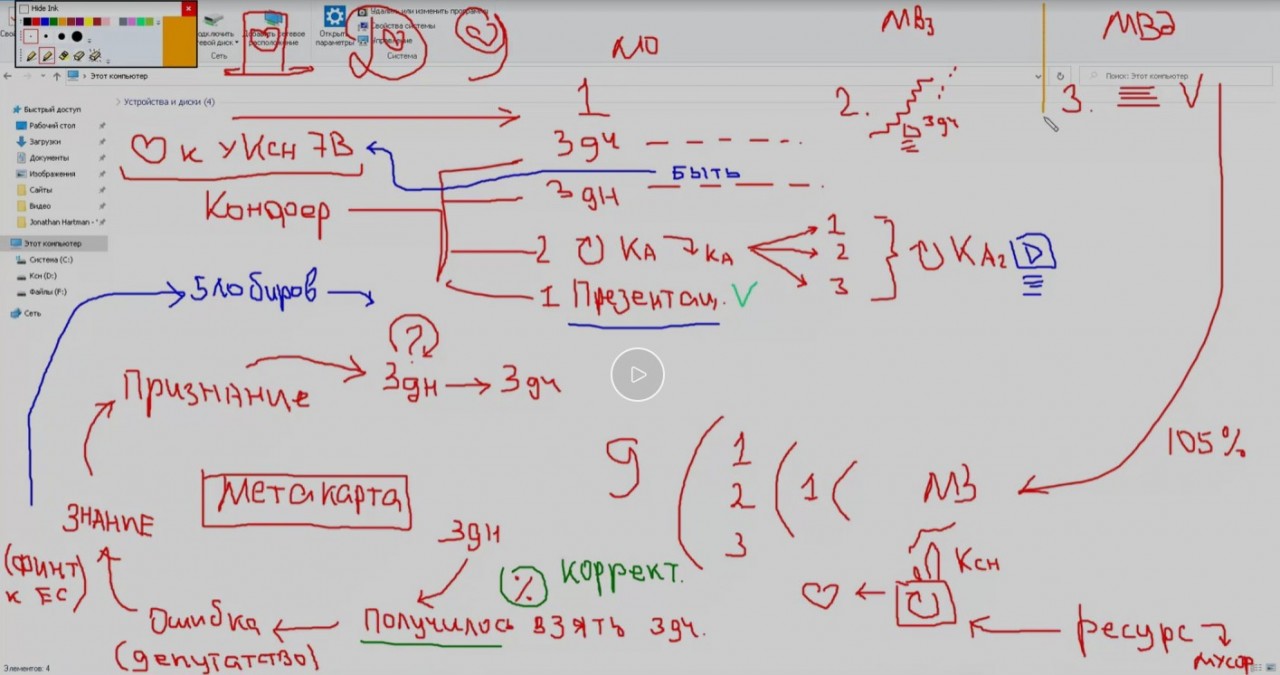 Hide Ink
Удалить или изменить программу
Свойства системы
Управление
Подключить сетевой диск
Добавить сетевое расположение
Открыть параметры
Сеть
Система
МО
МВ3
МВД
Этот компьютер
Поиск: Этот компьютер
Быстрый доступ
Рабочий стол
Загрузки
Документы
Изображения
Сайты
Видео
Jonathan Hartman - "
Этот компьютер
Система (C:)
Ксн (D:)
Файлы (F:)
Сеть
Устройства и диски (4)
1
2.
Здч
3.
V
к уКсн 7В
Здч
БЫТЬ
Здн
Конфрер
2 КА КА
1
2
3
КА2
1 Презентац. V
5 лобиров
?
Признание
Здн
Здч
105%
9 ( 1 2 3 ( 1 (
МЗ
Метакарта
ЗНАНИЕ
(Финт к ЕС)
Здн
% коррект.
Ксн
Ошибка
(депутатство)
Получилось взять здч.
ресурс
мусор
Элементов: 4